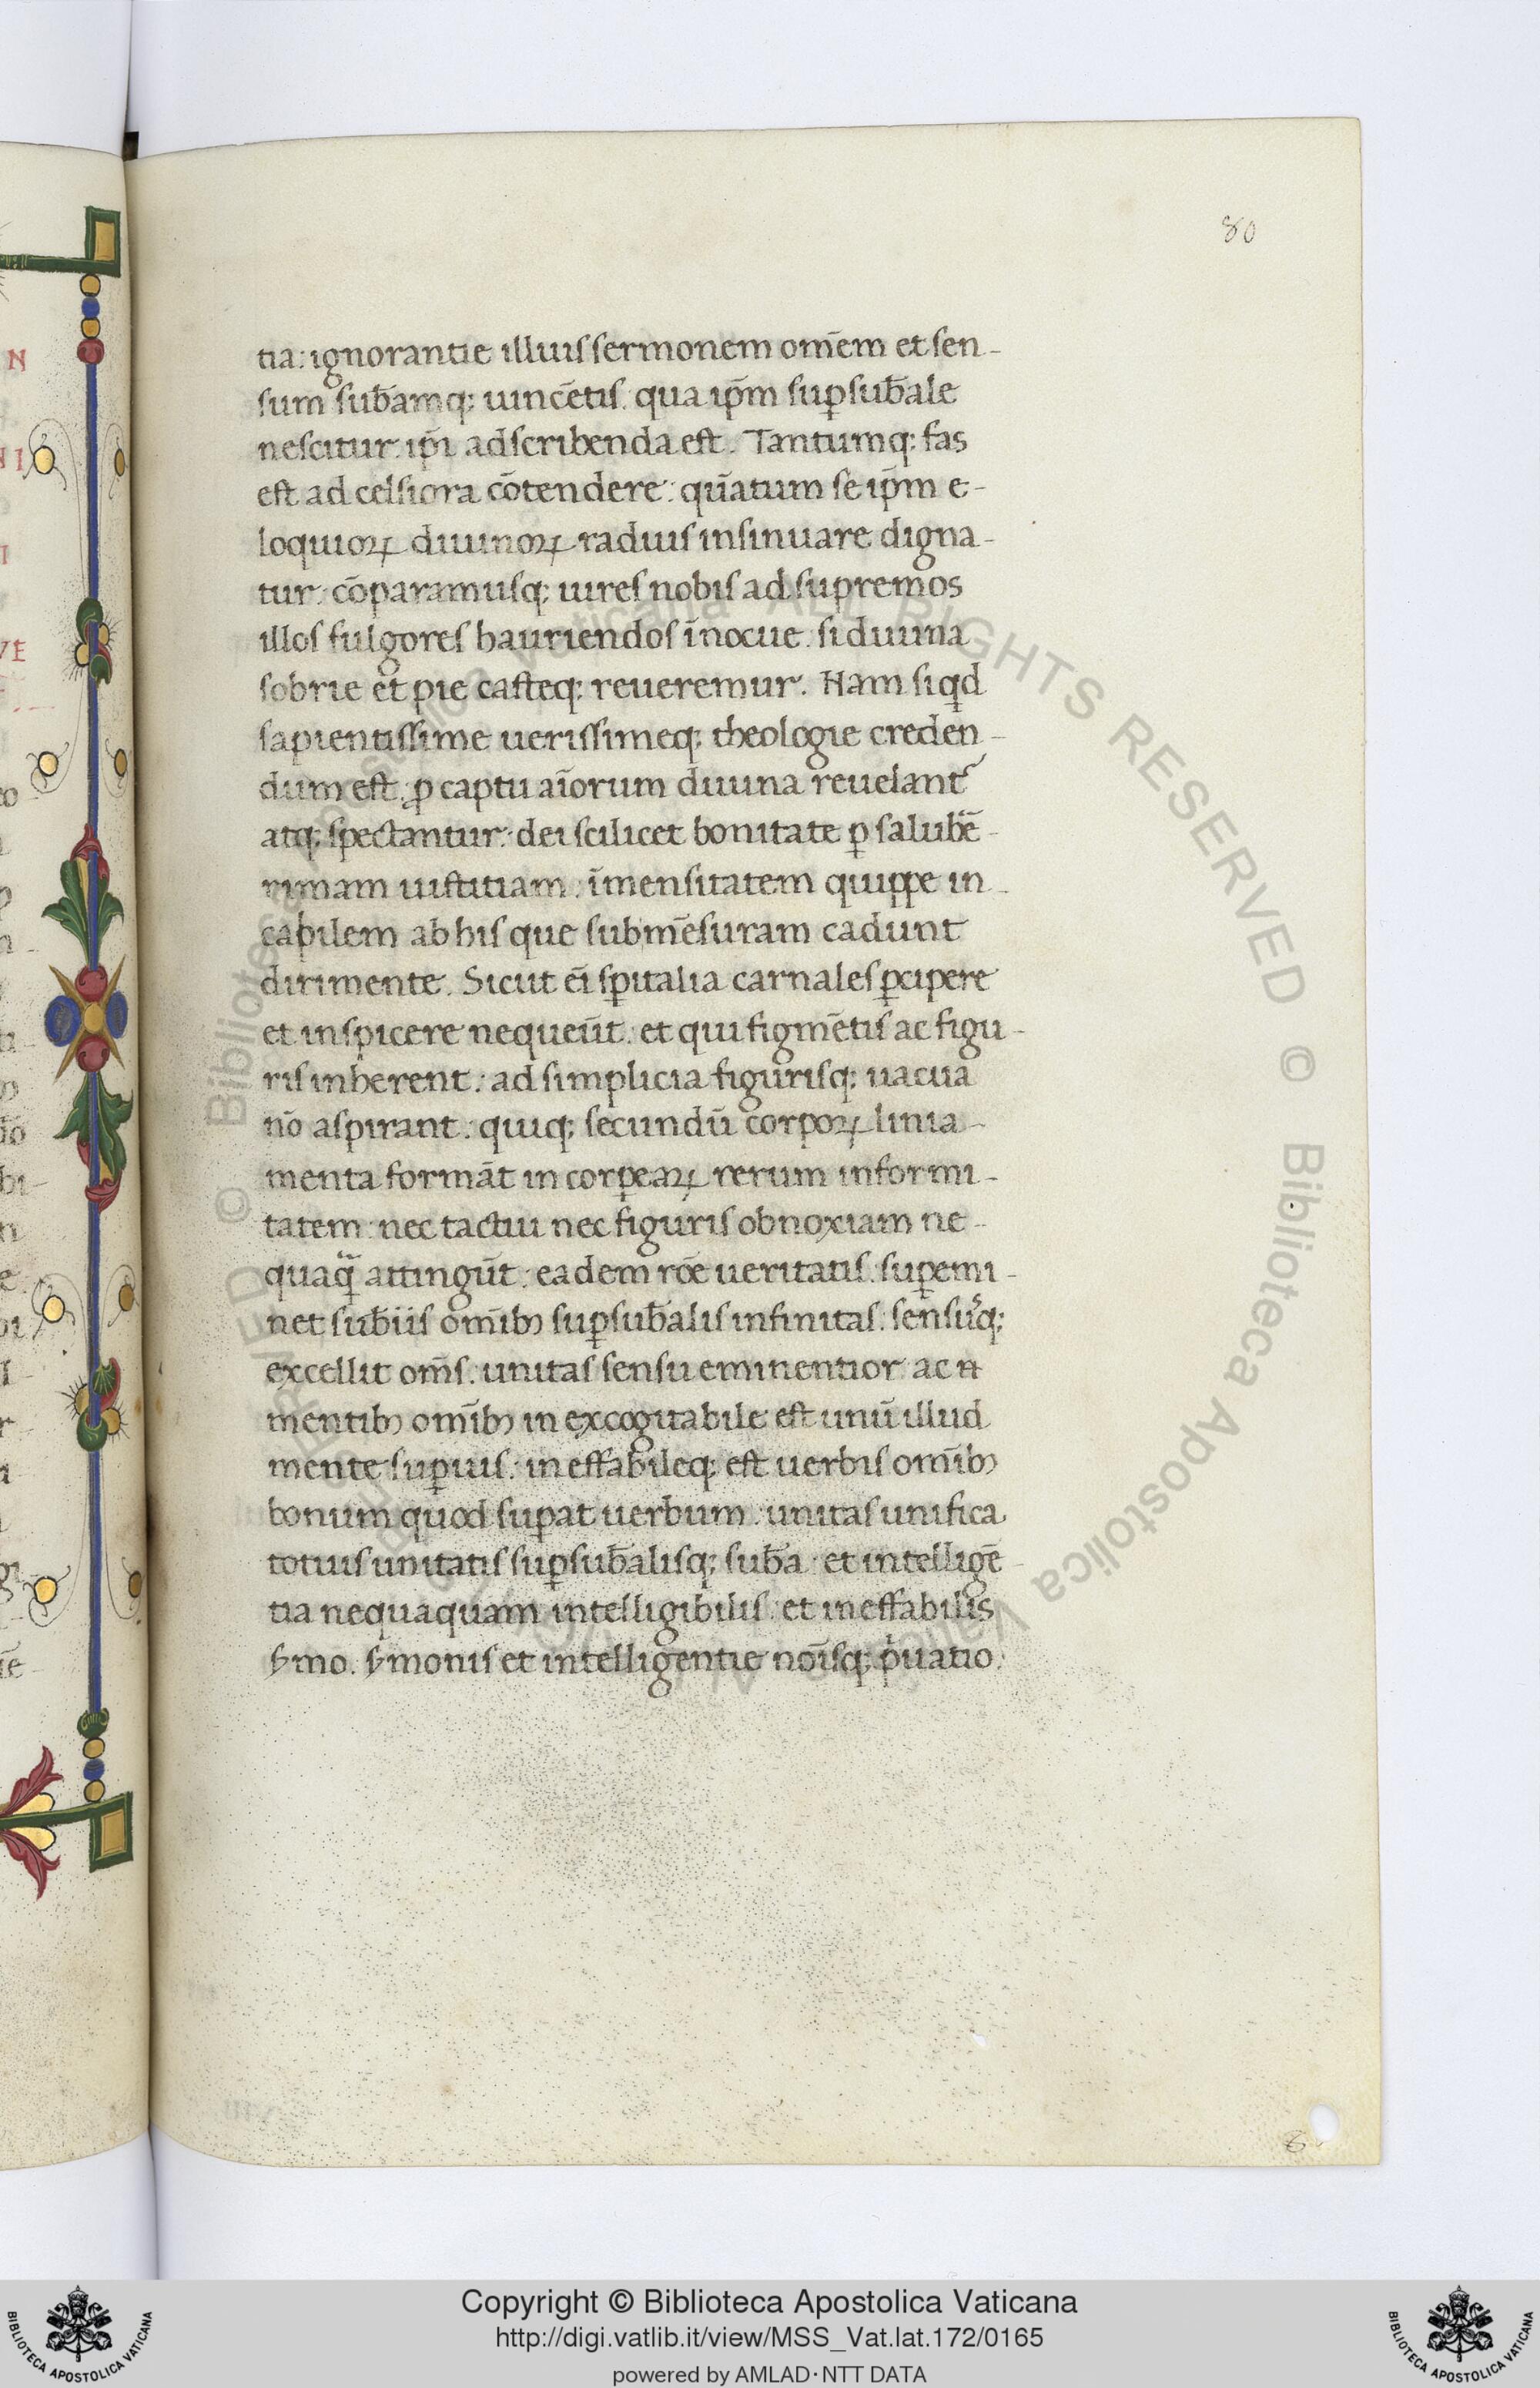 80
tia: ignorantie illius sermonem om̄em et sen-
sum sub̄amq; uincētis. qua ip̄m sup̱sub̄ale
nescitur. ip̄i adscribenda est. Tantumq; fas
est ad celsiora cōtendere: qūatum se ip̄m e-
loquioꝝ diuinoꝝ radiis insinuare digna-
tur. cōparamusq; uires nobis ad supremos
illos fulgores hauriendos īnocue. si diuina
sobrie et pie casteq; reueremur. Nam siqd
sapientissime uerissimeq; theologie creden-
dum est. ꝓ captu aīorum diuina reuelant᷑
atq; spectantur: dei scilicet bonitate ꝑ salub̄e-
rimam iustitiam: īmensitatem quippe in-
capilem ab his que sub mēsuram cadunt
dirimente. Sicut eī sp̄italia carnales ꝑcipere
et inspicere nequeūt. et qui figmētis ac figu-
ris inherent: ad simplicia figurisq; uacua
nō aspirant. quiq; secundū corpoꝝ linia-
menta formāt in corꝑeaꝝ rerum informi-
tatem: nec tactui nec figuris obnoxiam ne-
quaq̄ attingūt: eadem rōe ueritatis. suꝑemi-
net sub̄iis om̄ibꝫ suꝑsub̄alis infinitas. sensusq;
excellit om̄s. unitas sensu eminentior ac n̄
mentibꝫ om̄ibꝫ in excogitabile est unū illud
mente suꝑius: ineffabileq; est uerbis om̄ibꝫ
bonum quod suꝑat uerbum. unitas unifica
totius unitatis suꝑsub̄alisq; sub̄a. et intelligē-
tia nequaquam intelligibilis. et ineffabilis
ẜmo. ẜmonis et intelligentie noīsq; ṗuatio.
Copyright © Biblioteca Apostolica Vaticana
http://digi.vatlib.it/view/MSS_Vat.lat.172/0165
powered by AMLAD·NTT DATA
BIBLIOTECA APOSTOLICA VATICANA
BIBLIOTECA APOSTOLICA VATICANA